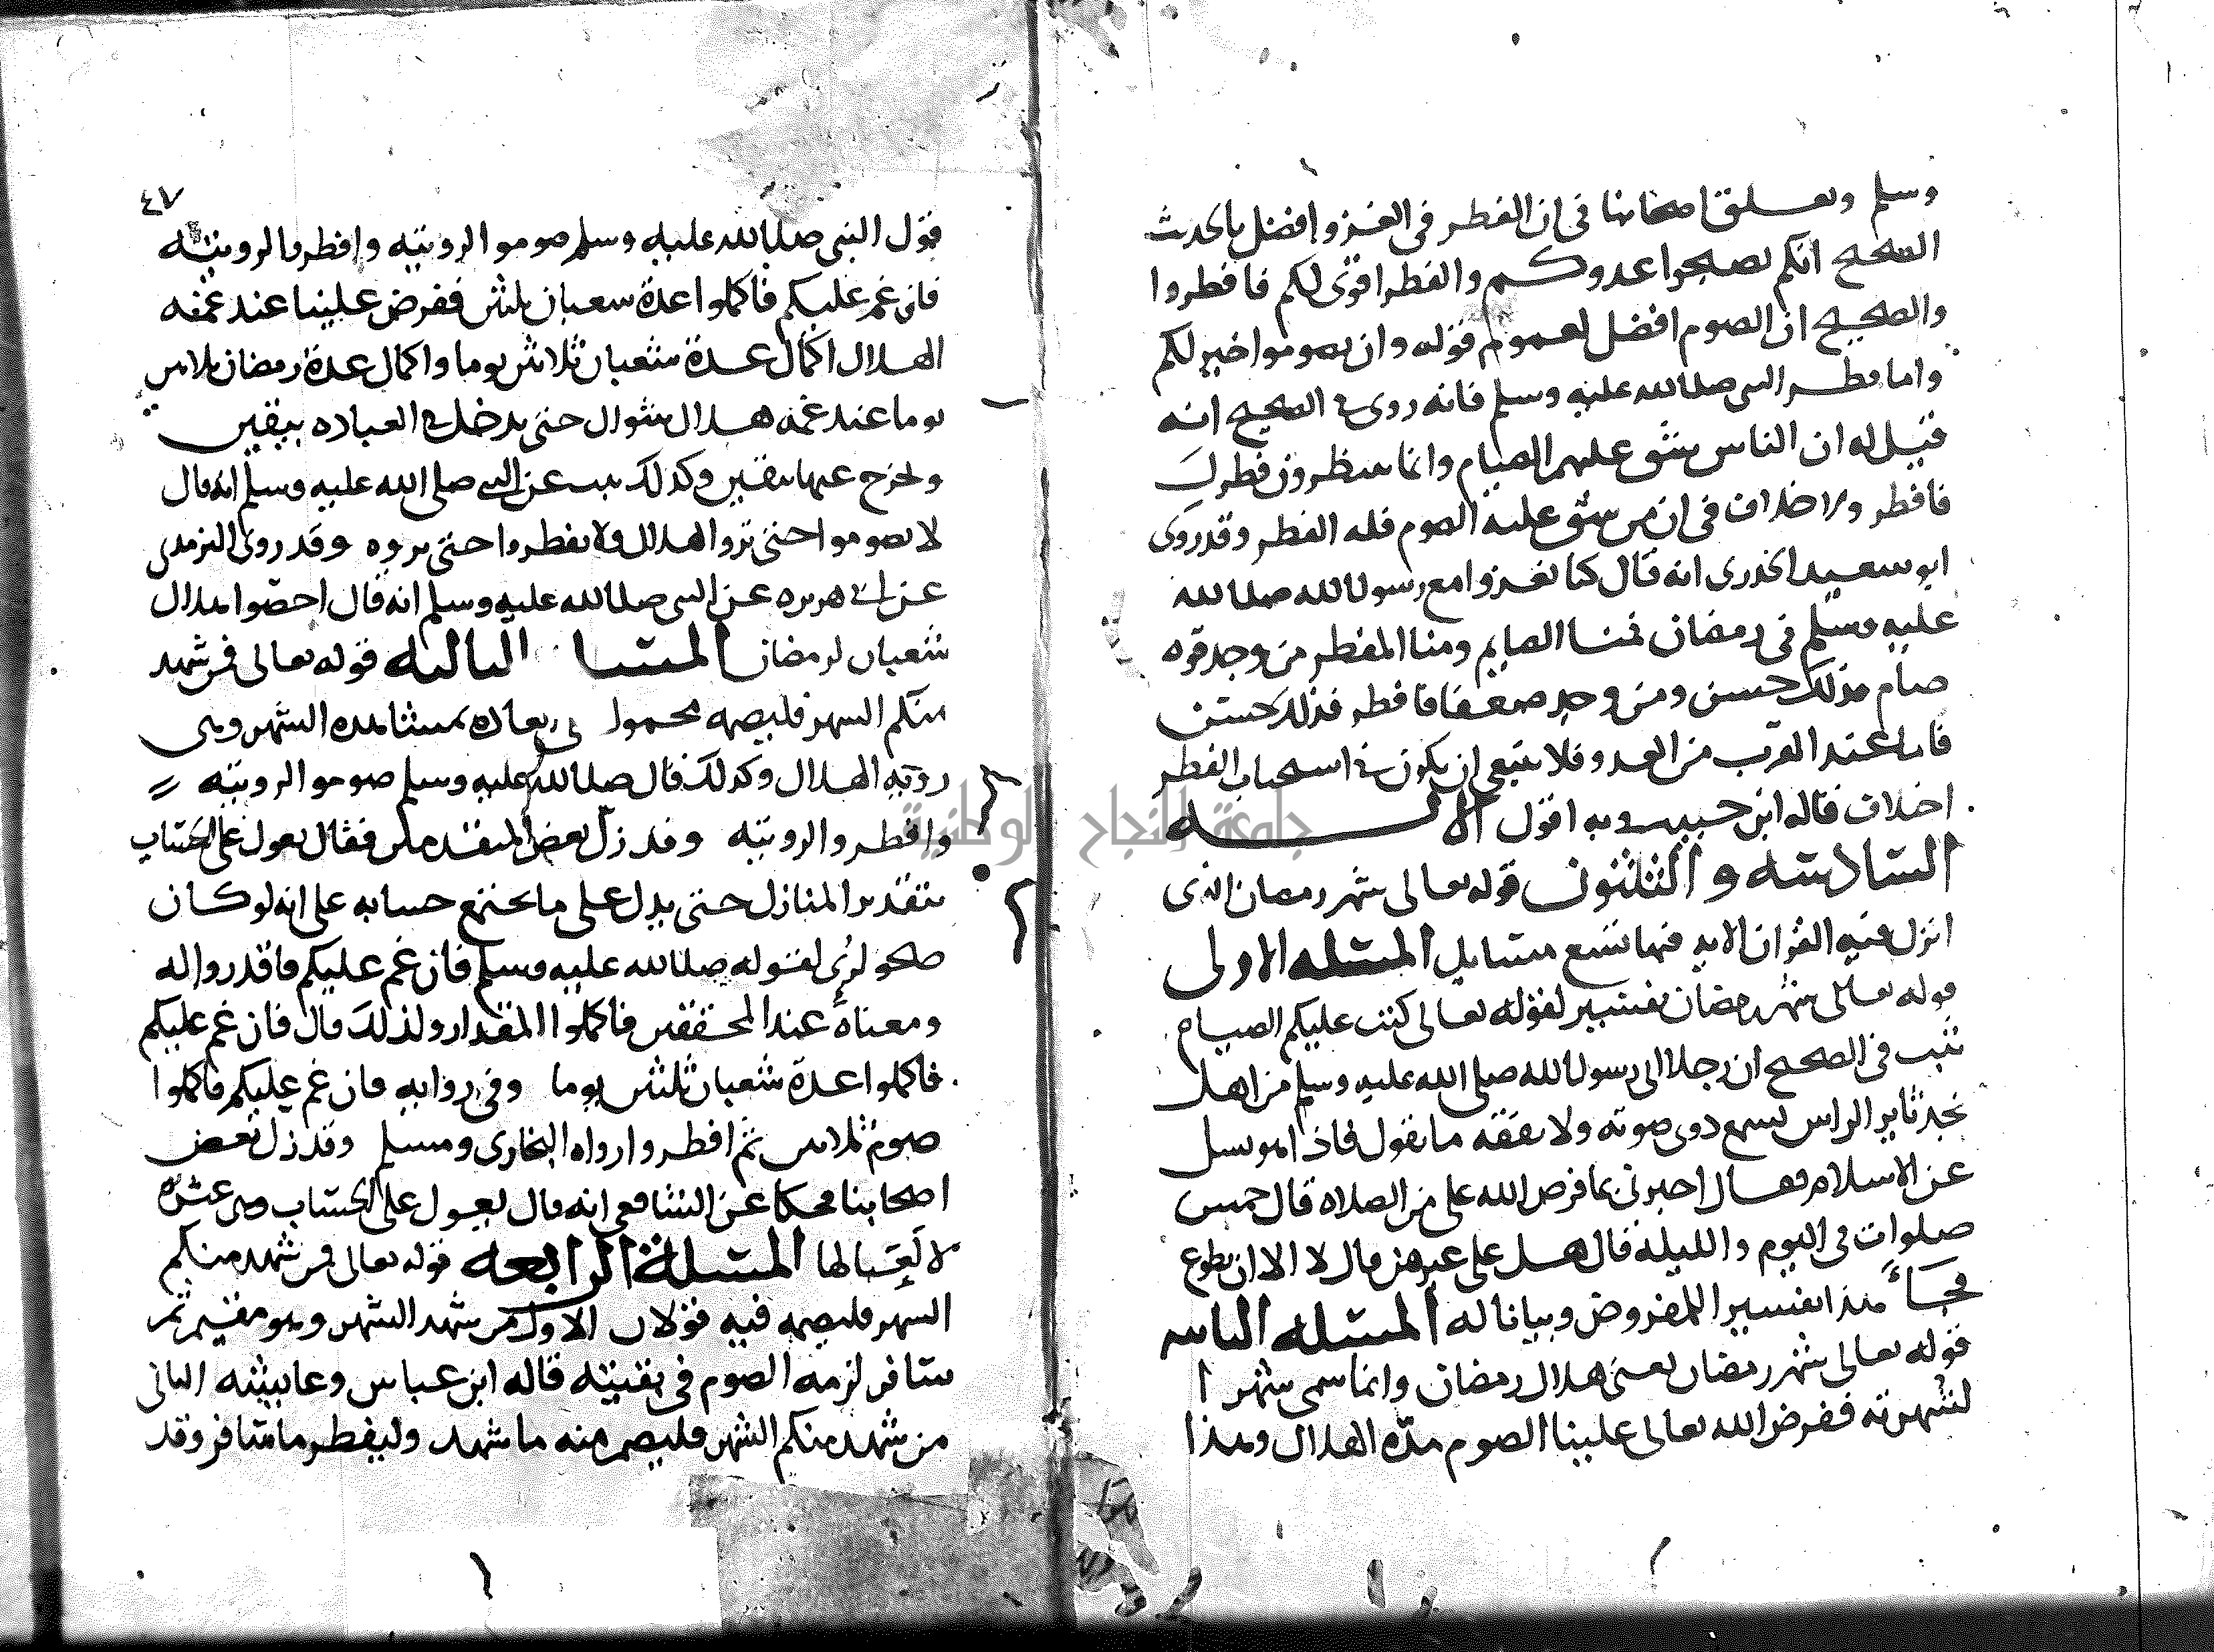 وسلم وتعلق اصحابنا في ان الفطر في الغزو افضل بالحديث
الصحيح انكم تصبحوا عدوكم والفطر اقوى لكم فافطروا
والصحيح ان الصوم افضل لعموم قوله وان تصوموا خير لكم
واما فطر النبي صلى الله عليه وسلم فانه روى في الصحيح انه
قيل له ان الناس يشق عليهم الصيام وانما ينتظرون فطرك
فافطر ولا خلاف في ان من يشق عليه الصوم فله الفطر وقد روى
ابو سعيد الخدري انه قال كنا نغزوا مع رسول الله صلى الله
عليه وسلم في رمضان فمنا الصايم ومنا المفطر من وجد قوه
صام فذلك حسن ومن وجد ضعفا فافطر فذلك حسن
فاما عند القرب من العدو فلا ينبغي ان يكون في استحباب الفطر
اختلاف قاله ابن حبيب وبه اقول الايــــه
السادسه والثلثون قوله تعالى شهر رمضان الذي
انزل فيه القران الايه فيها تسع مسايل المسئله الاولى
قوله تعالى شهر رمضان تفسير لقوله تعالى كتب عليكم الصيام
ثبت في الصحيح ان رجلا اتى رسول الله صلى الله عليه وسلم من اهل
نجد ثاير الراس نسمع دوى صوته ولا نفقه ما يقول فاذا هو يسل
عن الاسلام وقال اخبرني بما فرض الله علي من الصلاه قال خمس
صلوات في اليوم والليله قال هل علي غيرهن قال لا الا ان تطوع
فجاء هذا تفسيرا للمفروض وبيانا له المسئله الثانيه
قوله تعالى شهر رمضان يعني هلال رمضان وانما سمى شهرا
لشهرته ففرض الله تعالى علينا الصوم مدّه الهلال وهذا
٤٧
قول النبي صلى الله عليه وسلم صوموا لرويته وافطروا لرويته
فان غم عليكم فاكملوا عدة شعبان ثلثين ففرض علينا عند غمّه
الهلال اكمال عدة شعبان ثلاثين يوما واكمال عدة رمضان ثلاثين
يوما عند غمه هلال شوال حتى يدخل في العباده بيقين
ويخرج عنها بيقين وكذلك ثبت عن النبي صلى الله عليه وسلم انه قال
لا تصوموا حتى تروا الهلال ولا تفطروا حتى تروه وقد روى الترمذي
عن ابي هريره عن النبي صلى الله عليه وسلم انه قال احصوا هلال
شعبان لرمضان المسئله الثالثه قوله تعالى فمن شهد
منكم الشهر فليصمه محمول على العاده بمشاهده الشهر وهي
رؤيه الهلال وكذلك قال صلى الله عليه وسلم صوموا لرويته
وافطروا لرويته وقد زل بعض المتقدمين فقال يعول على الحساب
بتقدير المنازل حتى يدل على ما يجتمع حسابه على انه لو كان
صحو لرئى لقوله صلى الله عليه وسلم فان غم عليكم فاقدروا له
ومعناه عند المحققين فاكملوا المقدار ولذلك قال فان غم عليكم
فاكملوا عدة شعبان ثلثين يوما وفي روايه فان غم عليكم فاكملوا
صوم ثلاثين ثم افطروا رواه البخاري ومسلم وقد زل بعض
اصحابنا فحكا عن الشافعي انه قال يعول على الحساب وهي عثره
لا لعا لها المسئلة الرابعه قوله تعالى فمن شهد منكم
الشهر فليصمه فيه قولان الاول من شهد الشهر وهو مقيم ثم
سافر لزمه الصوم في بقيته قاله ابن عباس وعايشه الثاني
من شهد منكم الشهر فليصم منه ما شهد وليفطر ما سافر وقد